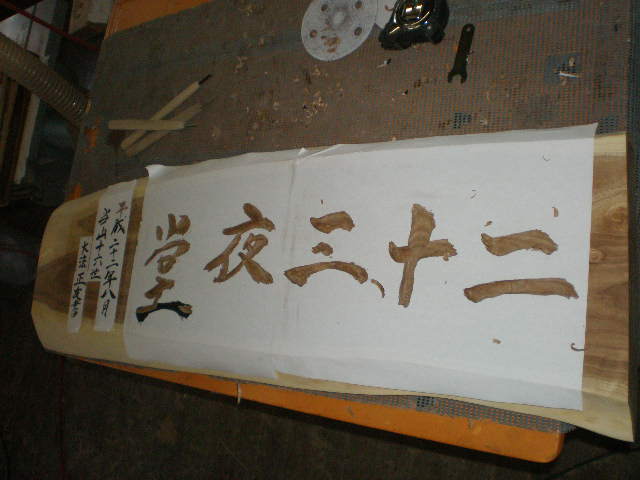 二十三夜堂
平成二十二年八月
当山十六世
大法正浩書